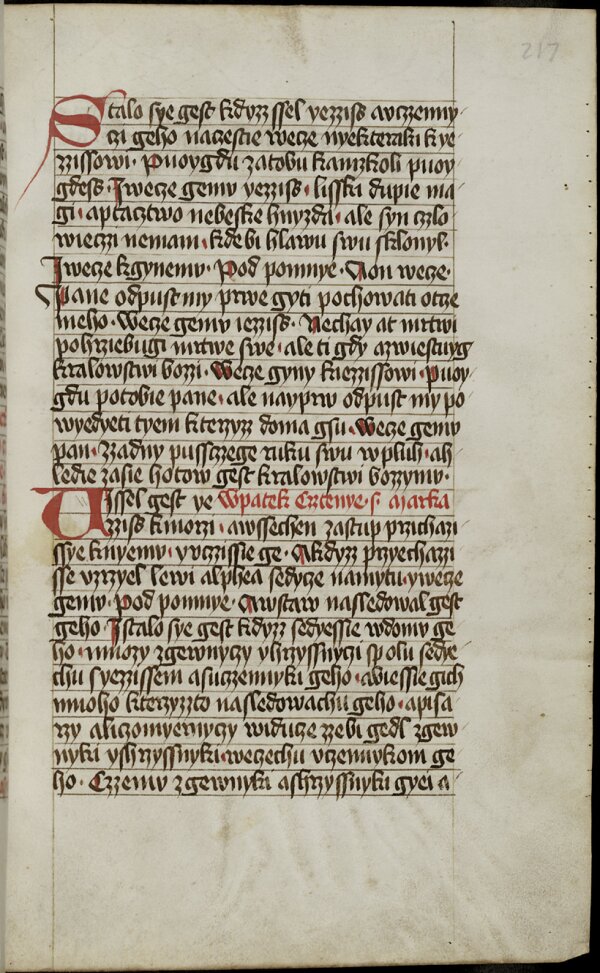 217
Stalo sye gest kdyzz ssel yezziss avczenny
czi geho naczestie wecze nyekteraki k ye
zzissowi · Puoygdu zatobu kamzkoli puoy
gdess · I wecze gemu yezziss · lisski dupie ma
gi · aptacztwo nebeske hnyzda · ale syn czlo
wieczi nemam · kdebi hlawu swu sklonyl ·
I wecze k gynemu · Pod pomnye · A on wecze ·
Pane odpust my prwe gyti pochowati otcze
meho · wecze gemu iezziss · Nechay at mrtwi
pohrziebugi mrtwe swe · ale ti gdy azwiestuyg
kralowstwi bozzi · Wecze gyny k iezzissowi · Puoy
gdu potobie pane · ale nayprw odpust my po
wyedyeti tyem kterzyz doma gsu · Wecze gemu
pan · Zzadny pussczege ruku swu w pluh · ah
ledie zasie hotow gest kralowstwi bozzymu ·
Uissel gest ye Wpatek Cztenye · s · Marka
zziss k morzi · awssechen zastup przichazi
ssye k nyemu · y vczissie ge · A kdyzz przyechazi
sse vzrzyel lewi alphea sedycze namytu · y wecze
gemu · Pod pomnye · A wstaw nasledowal gest
geho I stalo sye gest kdyzz sedyessie wdomu ge
ho · mnozy zgewnyczy yhrzyssnyczi spolu sedye
chu syezzissem asuczemyki geho · abiessie gich
mnoho kterzyzto nasledowachu geho · a pisa
rzy aliczomyernyczy widucze zzebi gedl zgew
nyki yshrzyssnyki · weczechu vczemykom ge
ho · Czzemu zgewnyki ashrzyssnyki gyei a